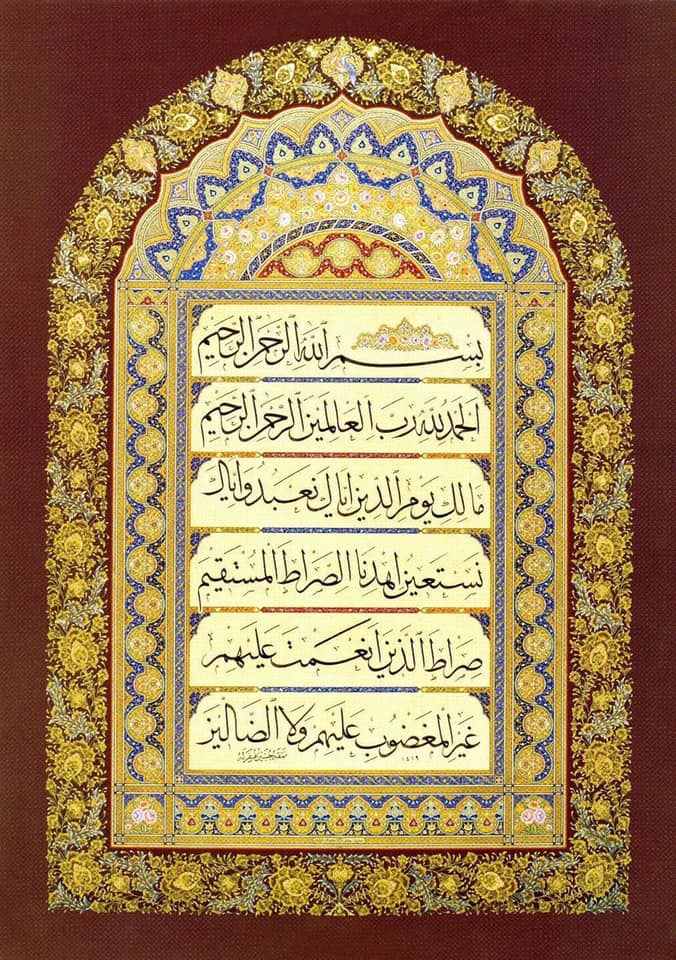 بسم الله الرحمن الرحيم
الحمد لله رب العالمين الرحمن الرحيم
مالك يوم الدين اياك نعبد واياك
نستعين اهدنا الصراط المستقيم
صراط الذين انعمت عليهم
غير المغضوب عليهم ولا الضالين
١٤١٩